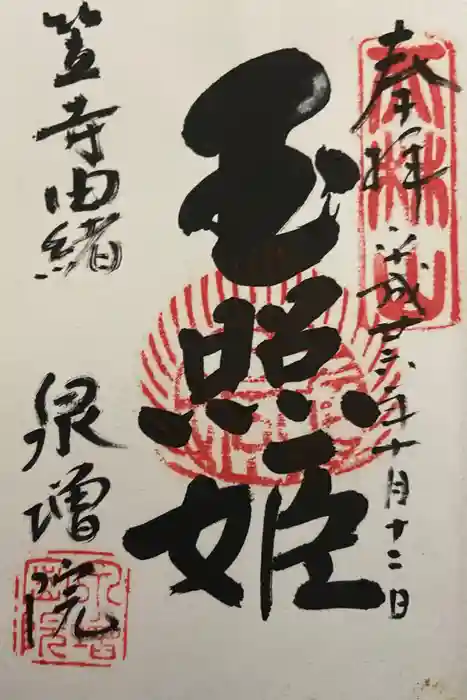 奉拝 平成廿六年十月十二日
天林山
玉照姫
笠寺由緒 泉増院